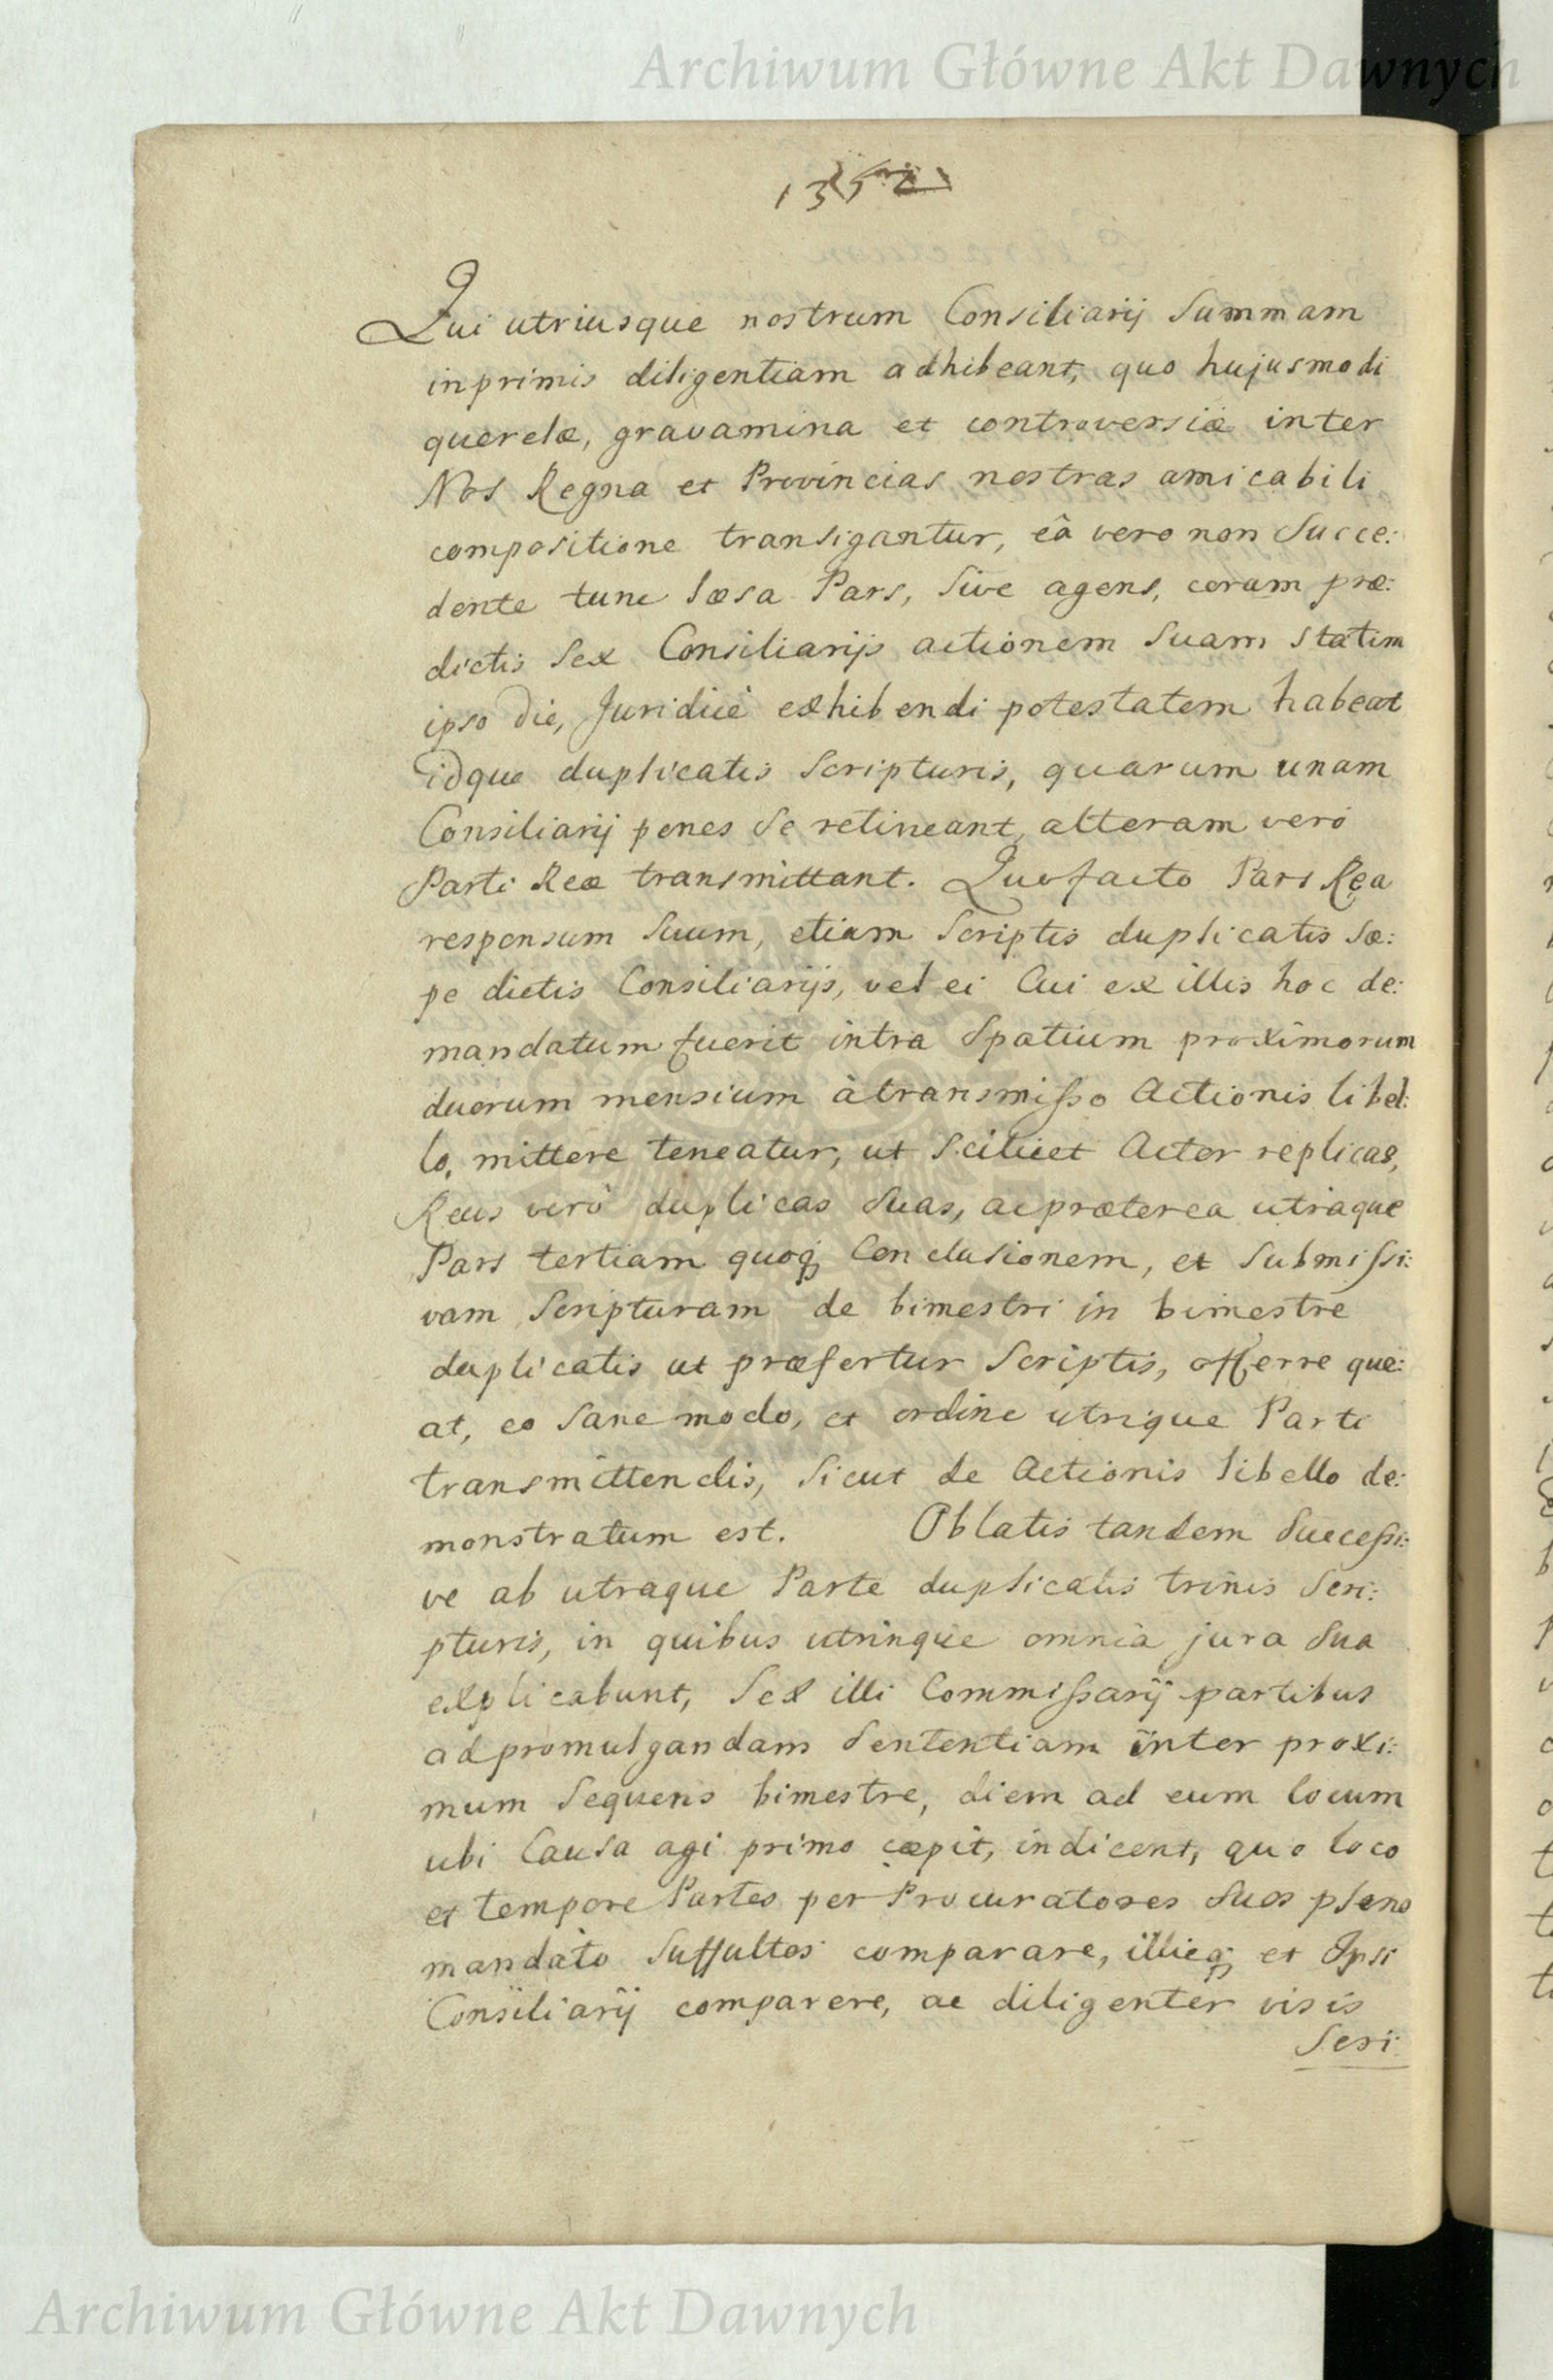 Archiwum Główne Akt Dawnych
Qui utriusque nostrum Consiliarij Summam
inprimis diligentiam adhibeant, quo hujusmodi
querelæ, gravamina et controversiæ inter
Nos Regna et Provincias nostras amicabili
compositione transigantur, eâ vero non Succe:
dente tunc læsa Pars, Sive agens, coram præ:
dictis Sex Consiliarijs actionem Suam Statim
ipso die, Juridicè exhibendi potestatem habeat
idque duplicatis Scripturis, quarum unam
Consiliarij penes Se retineant, alteram verò
Parti Reæ transmittant. Quo facto Pars Rea
responsum Suum, etiam Scriptis duplicatis Sæ:
pe dictis Consiliarijs, vel ei Cui ex illis hoc de:
mandatum fuerit intra Spatium proximorum
duorum mensium à transmisso Actionis libel:
lo, mittere teneatur, ut Scilicet Actor replicas,
Reus verò duplicas Suas, ac præterea utraque
Pars tertiam quoq; Conclusionem, et Submissi:
vam Scripturam de bimestri in bimestre
duplicatis ut præfertur Scriptis, offerre que:
at, eo Sane modo, et ordine utrique Parti
transmittendis, Sicut de Actionis libello de:
monstratum est. Oblatis tandem Successi:
ve ab utraque Parte duplicatis trinis Scri:
pturis, in quibus utrinque omnia jura Sua
explicabunt, Sex illi Commissarij partibus
ad promulgandam Sententiam inter proxi:
mum Sequens bimestre, diem ad eum locum
ubi Causa agi primo cæpit, indicent, quo loco
et tempore Partes per Procuratores Suos pleno
mandato Suffultos comparare, illicq; et Ipsi
Consiliarij comparere, ac diligenter visis
Scri:
Archiwum Główne Akt Dawnych